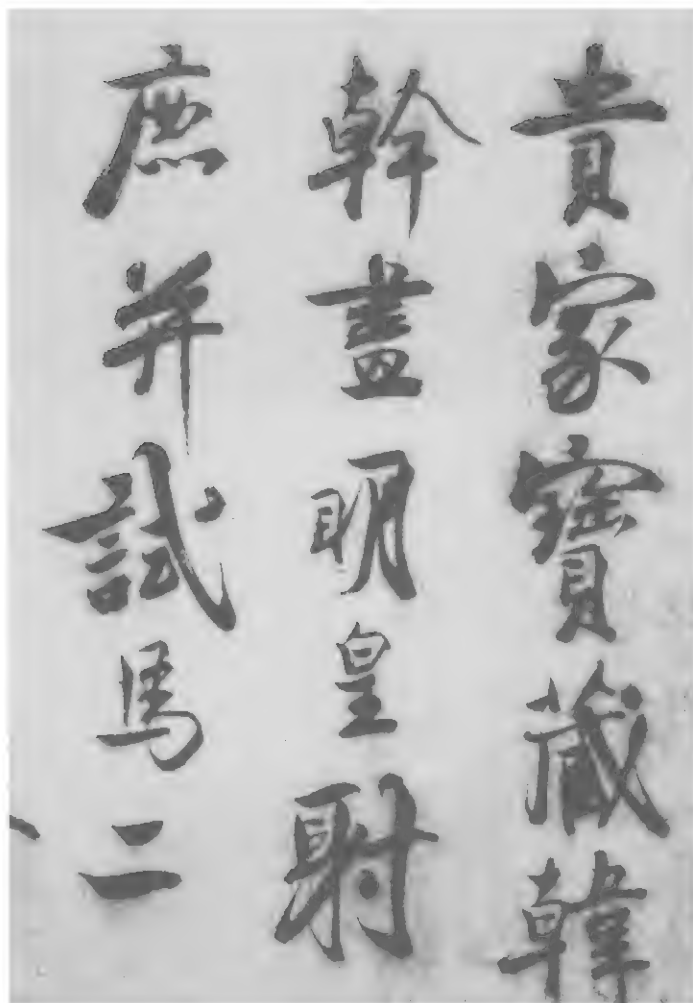 貴家寶藏韓
幹畫明皇射
鹿并試馬二